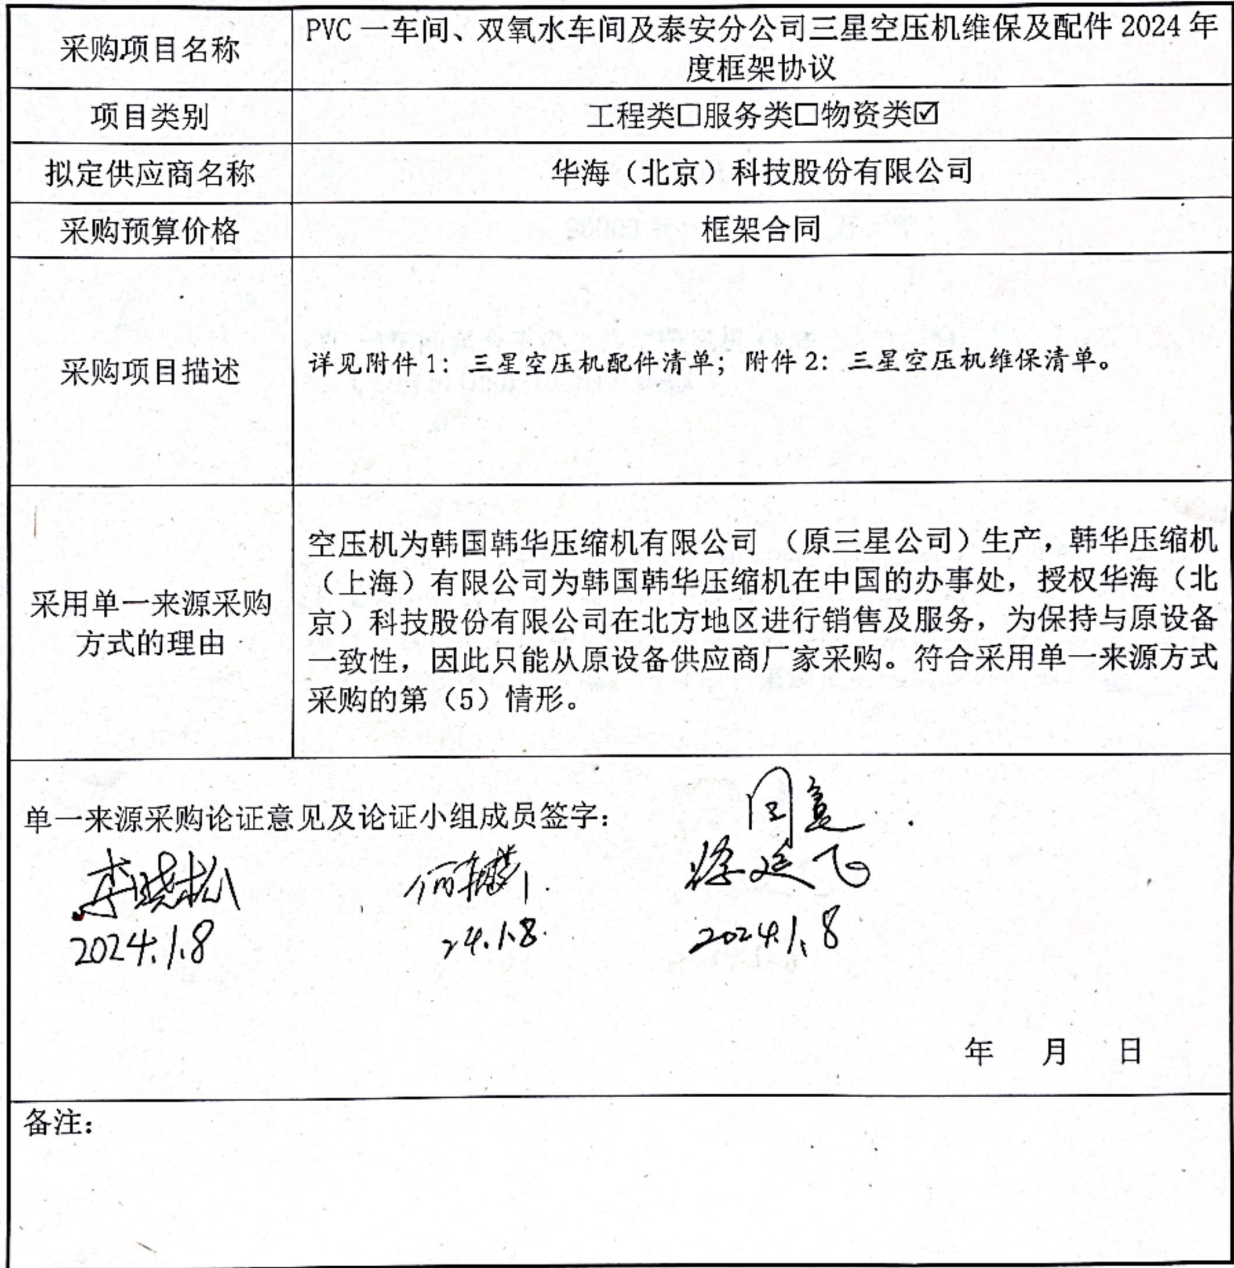 采购项目名称
PVC 一车间、双氧水车间及泰安分公司三星空压机维保及配件 2024 年
度框架协议
项目类别
工程类☐服务类☐物资类☑
拟定供应商名称
华海（北京）科技股份有限公司
采购预算价格
框架合同
采购项目描述
详见附件 1：三星空压机配件清单；附件 2：三星空压机维保清单。
采用单一来源采购
方式的理由
空压机为韩国韩华压缩机有限公司 （原三星公司）生产，韩华压缩机
（上海）有限公司为韩国韩华压缩机在中国的办事处，授权华海（北
京）科技股份有限公司在北方地区进行销售及服务，为保持与原设备
一致性，因此只能从原设备供应商厂家采购。符合采用单一来源方式
采购的第（5）情形。
单一来源采购论证意见及论证小组成员签字：
同意
李晓松
2024.1.8
24.1.8.
2024.1.8
年 月 日
备注：